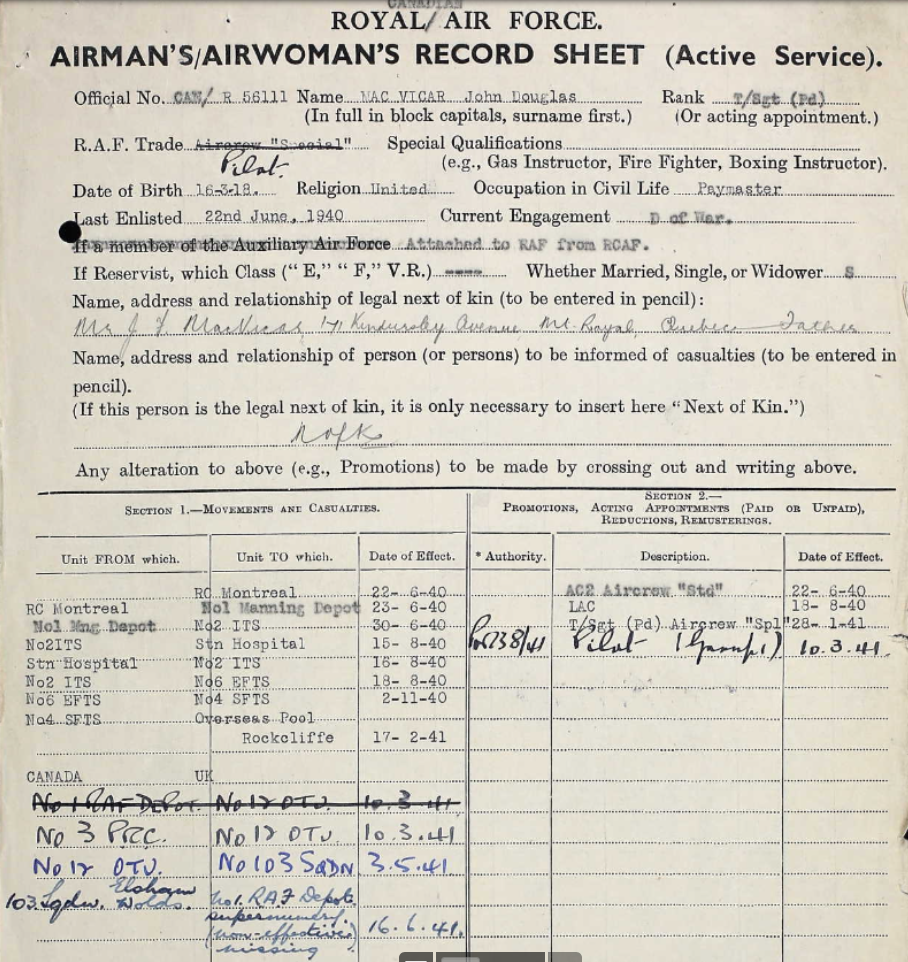 CANADIAN
ROYAL/ AIR FORCE.
AIRMAN'S/AIRWOMAN'S RECORD SHEET (Active Service).
Official No. CAN/ R 56111 Name MAC VICAR John Douglas Rank T/Sgt (Pd)
(In full in block capitals, surname first.) (Or acting appointment.)
R.A.F. Trade Aircrew "Special" Special Qualifications
Pilot. (e.g., Gas Instructor, Fire Fighter, Boxing Instructor).
Date of Birth 16-3-18. Religion United Occupation in Civil Life Paymaster
Last Enlisted 22nd June, 1940 Current Engagement D of War.
If a member of the Auxiliary Air Force Attached to RAF from RCAF.
If Reservist, which Class ("E," "F," V.R.) ---- Whether Married, Single, or Widower S
Name, address and relationship of legal next of kin (to be entered in pencil):
Mr J Y MacVicar, 171 Kindersley Avenue, Mt. Royal, Quebec Father
Name, address and relationship of person (or persons) to be informed of casualties (to be entered in
pencil).
(If this person is the legal next of kin, it is only necessary to insert here "Next of Kin.")
N of K
Any alteration to above (e.g., Promotions) to be made by crossing out and writing above.
SECTION 1.—MOVEMENTS AND CASUALTIES. SECTION 2.—
PROMOTIONS, ACTING APPOINTMENTS (PAID OR UNPAID),
REDUCTIONS, REMUSTERINGS.
Unit FROM which. Unit TO which. Date of Effect. * Authority. Description. Date of Effect.
RC Montreal 22- 6-40 AC2 Aircrew "Std" 22- 6-40
RC Montreal No1 Manning Depot 23- 6-40 LAC 18- 8-40
No1 Mng Depot No2 ITS 30- 6-40 T/Sgt (Pd) Aircrew "Spl" 28- 1-41
No2ITS Stn Hospital 15- 8-40 238/41 Pilot (Group 1) 10.3.41
Stn Hospital No2 ITS 16- 8-40
No2 ITS No6 EFTS 18- 8-40
No6 EFTS No4 SFTS 2-11-40
No4 SFTS Overseas Pool
Rockcliffe 17- 2-41
CANADA UK
No 1 RAF DEPOT. No 12 OTU. 10.3.41
No 3 PRC. No 12 OTU. 10.3.41
No 12 OTU. No 103 SQDN 3.5.41
103 Sqdn. Elsham Wolds. No1. RAF Depot
supernumery.
(non-effective) 16.6.41.
missing